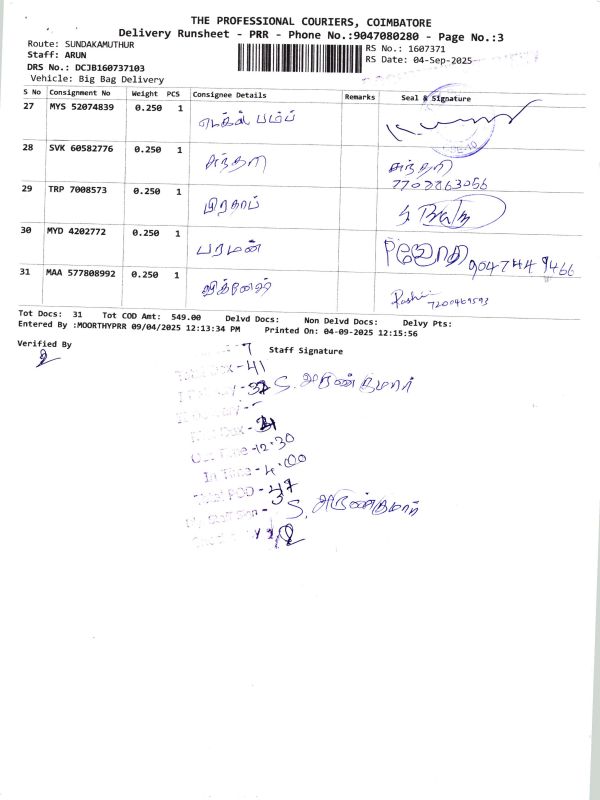 THE PROFESSIONAL COURIERS, COIMBATORE
Delivery Runsheet - PRR - Phone No.:9047080280 - Page No.:3
Route: SUNDAKAMUTHUR RS No.: 1607371
Staff: ARUN RS Date: 04-Sep-2025
DRS No.: DCJB160737103
Vehicle: Big Bag Delivery
S No Consignment No Weight PCS Consignee Details Remarks Seal & Signature
27 MYS 52074839 0.250 1
28 SVK 60582776 0.250 1 சுந்தரி சுந்தரி
7708863056
29 TRP 7008573 0.250 1 பிரதாப்
30 MYD 4202772 0.250 1 பரமன் 904744 9466
31 MAA 577808992 0.250 1 விக்னேஷ்
7200469593
Tot Docs: 31 Tot COD Amt: 549.00 Delvd Docs: Non Delvd Docs: Delvy Pts:
Entered By :MOORTHYPRR 09/04/2025 12:13:34 PM Printed On: 04-09-2025 12:15:56
Verified By Staff Signature
- 7
- 41
S. அருண்குமார்
Out Time - 12.30
In Time - 4.00
Total POD - 47
S. அருண்குமார்